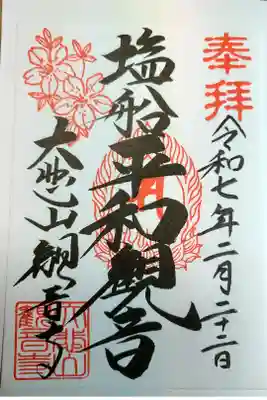 奉拝
令和七年二月二十二日
塩船平和観音
大悲山観音寺